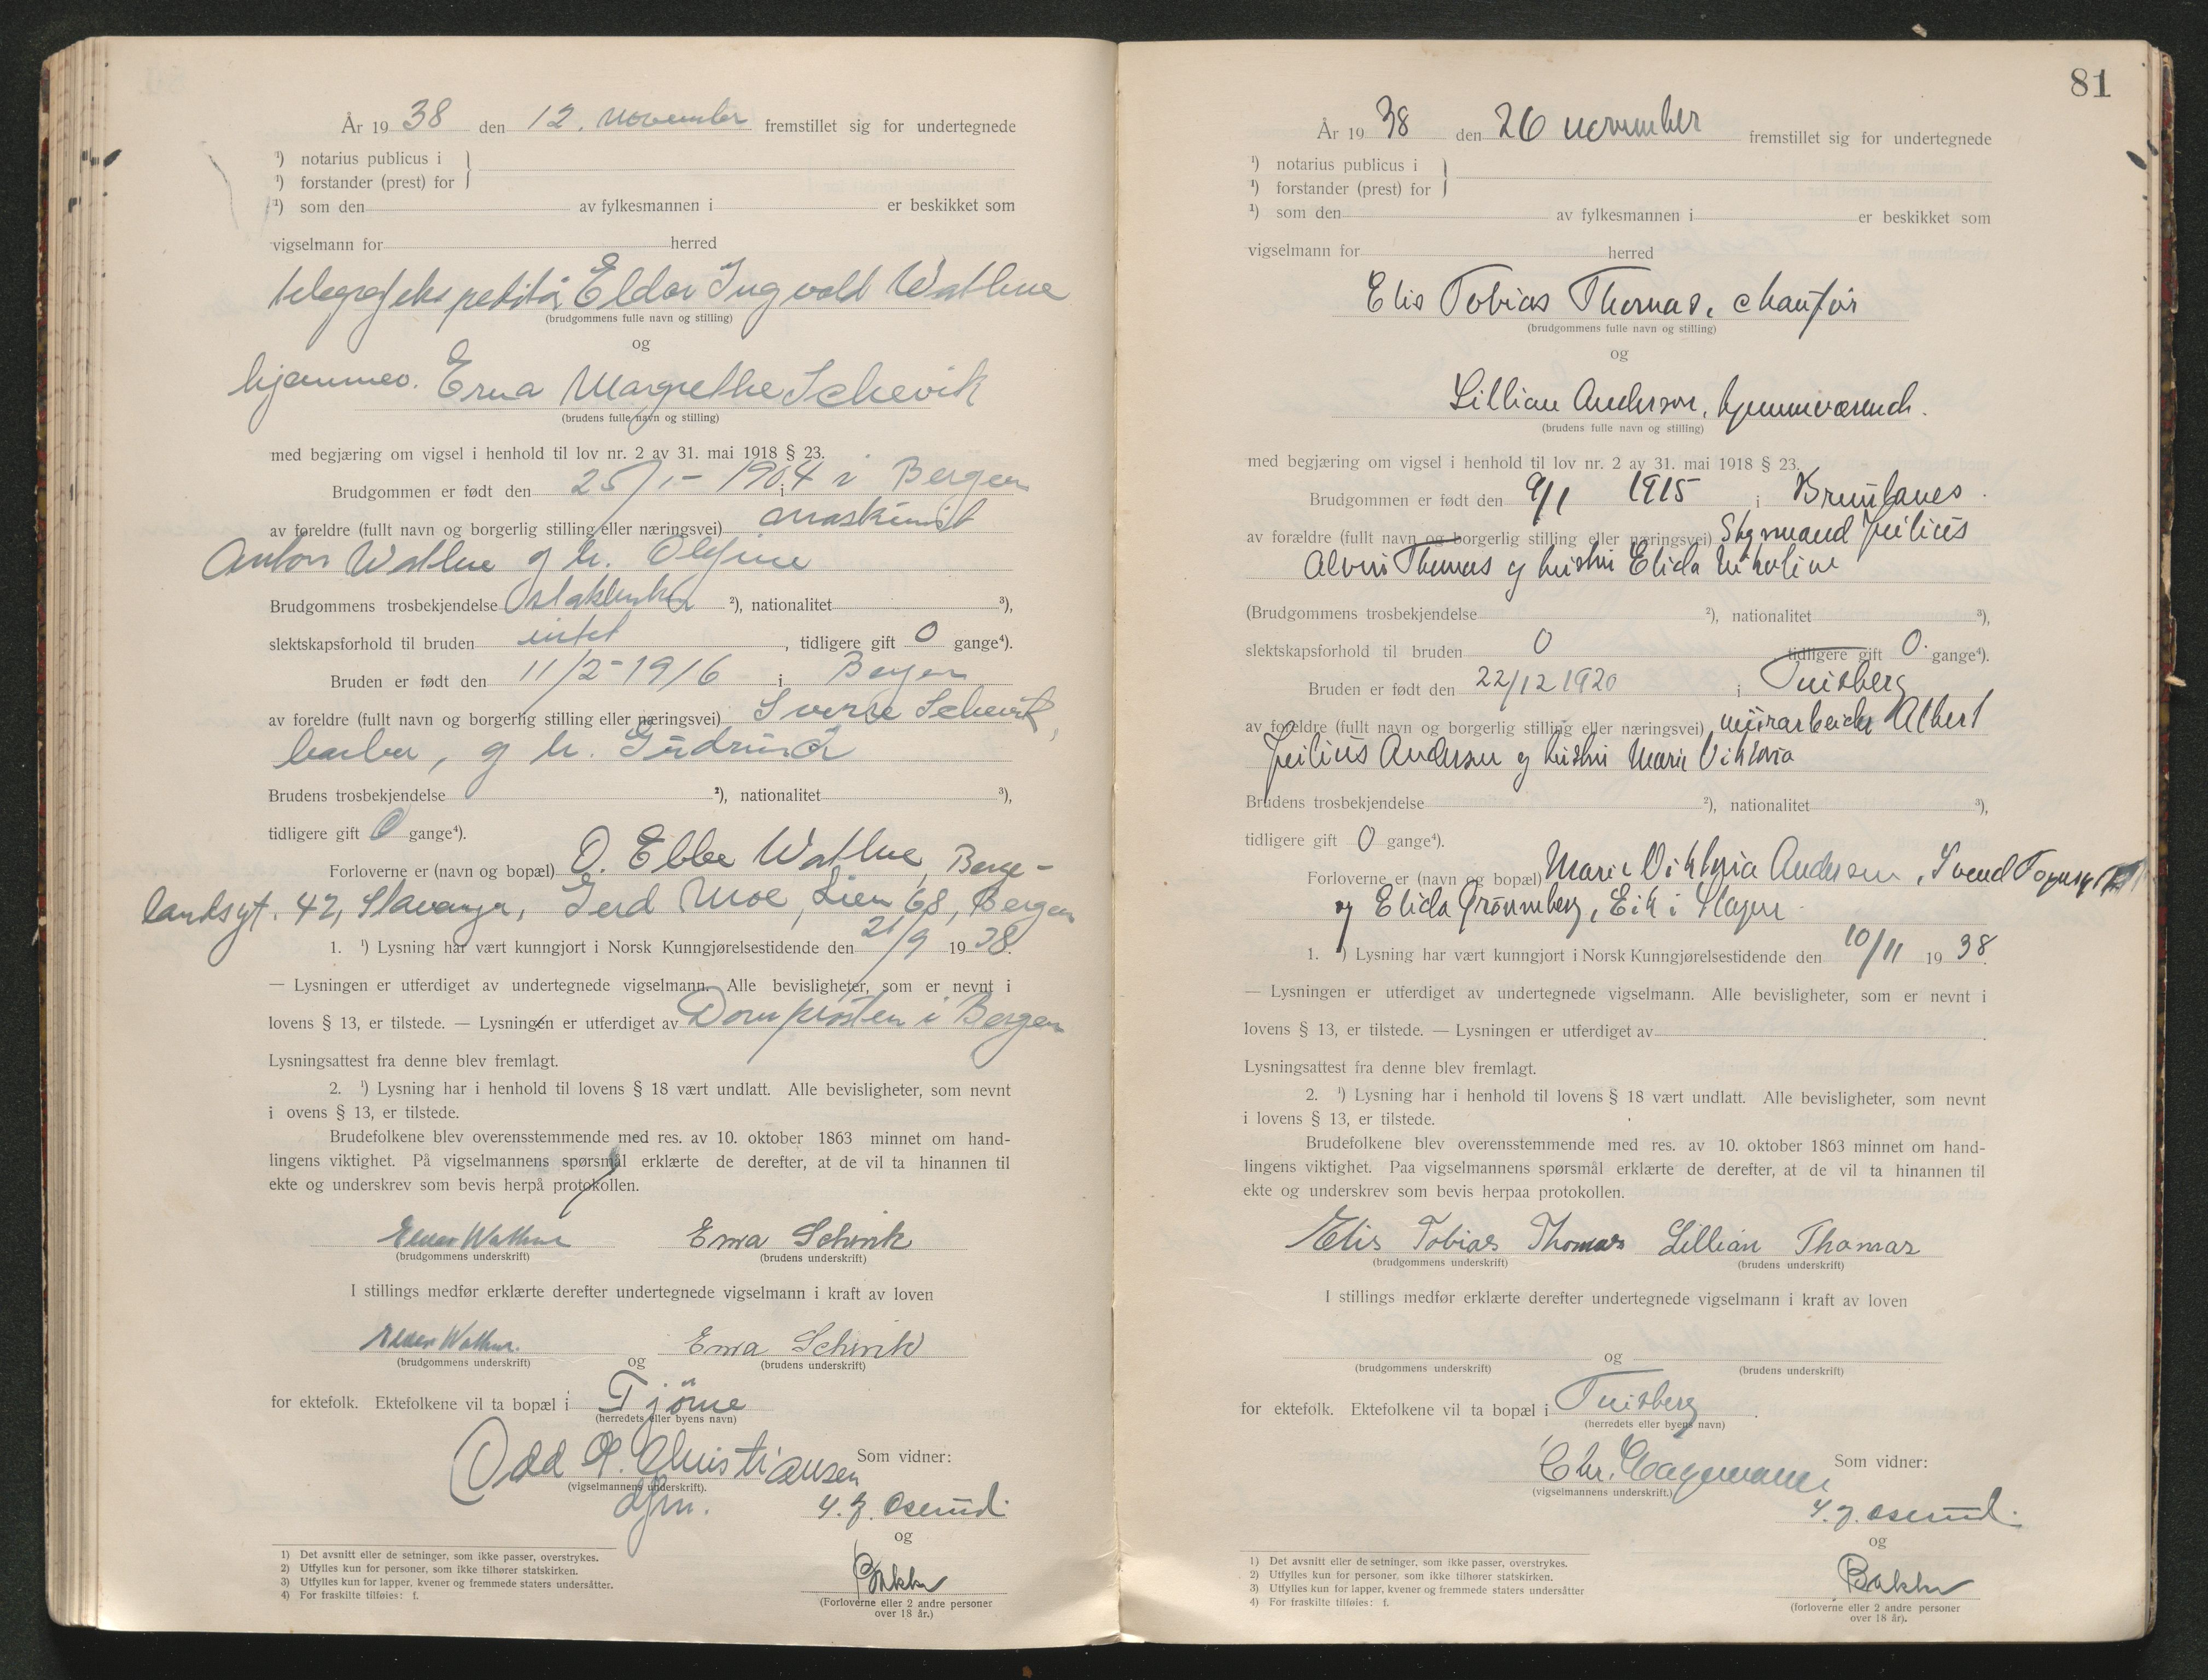 År 19 38 den 12. november fremstillet sig for undertegnede
¹) notarius publicus i
¹) forstander (prest) for
¹) som den av fylkesmannen i er beskikket som
vigselmann for herred
telegrafekspeditør Eldar Ingvald Wathne
(brudgommens fulle navn og stilling)
og
hjemmev. Erna Margrethe Schevik
(brudens fulle navn og stilling)
med begjæring om vigsel i henhold til lov nr. 2 av 31. mai 1918 § 23.
Brudgommen er født den 25/1 - 1904 i Bergen
av foreldre (fullt navn og borgerlig stilling eller næringsvei) maskinist
Anton Wathne og h. Olefine
Brudgommens trosbekjendelse statskirken ²), nationalitet ³),
slektskapsforhold til bruden intet, tidligere gift 0 gange⁴).
Bruden er født den 11/2 - 1916 i Bergen
av foreldre (fullt navn og borgerlig stilling eller næringsvei) Sverre Schevik,
barber, og h. Gudrun
Brudens trosbekjendelse ²), nationalitet ³),
tidligere gift 0 gange⁴).
Forloverne er (navn og bopæl) O. Ebbe Wathne, Berge-
landsgt. 42, Stavanger, Gerd Moe, Lien 68, Bergen
1. ¹) Lysning har vært kunngjort i Norsk Kunngjørelsestidende den 21/9 19 38.
— Lysningen er utferdiget av undertegnede vigselmann. Alle bevisligheter, som er nevnt i
lovens § 13, er tilstede. — Lysningen er utferdiget av Domprosten i Bergen
Lysningsattest fra denne blev fremlagt.
2. ¹) Lysning har i henhold til lovens § 18 vært undlatt. Alle bevisligheter, som nevnt
i ovens § 13, er tilstede.
Brudefolkene blev overensstemmende med res. av 10. oktober 1863 minnet om hand-
lingens viktighet. På vigselmannens spørsmål erklærte de derefter, at de vil ta hinannen til
ekte og underskrev som bevis herpå protokollen.
Eldar Wathne Erna Schevik
(brudgommens underskrift) (brudens underskrift)
I stillings medfør erklærte derefter undertegnede vigselmann i kraft av loven
Eldar Wathne. Erna Schevik
(brudgommens underskrift) og (brudens underskrift)
for ektefolk. Ektefolkene vil ta bopæl i Tjöme
(herredets eller byens navn)
Odd A. Christiansen
Som vidner:
(vigselmannens underskrift).
dfm.
Y. J. Oserud.
og
Bakke
(Forloverne eller 2 andre personer
over 18 år.)
1) Det avsnitt eller de setninger, som ikke passer, overstrykes.
2) Utfylles kun for personer, som ikke tilhører statskirken.
3) Utfylles kun for lapper, kvener og fremmede staters undersåtter.
4) For fraskilte tilføies: f.
81
År 19 38 den 26 november fremstillet sig for undertegnede
¹) notarius publicus i
¹) forstander (prest) for
¹) som den av fylkesmannen i er beskikket som
vigselmann for herred
Elis Tobias Thomas, chauför
(brudgommens fulle navn og stilling)
og
Lillian Andersen, hjemmeværende.
(brudens fulle navn og stilling)
med begjæring om vigsel i henhold til lov nr. 2 av 31. mai 1918 § 23.
Brudgommen er født den 9/1 1915 i Brunlanes.
av forældre (fullt navn og borgerlig stilling eller næringsvei) Styrmand Julius
Alvin Thomas og hustru Elida Nikoline
(Brudgommens trosbekjendelse ²), nationalitet ³),
slektskapsforhold til bruden 0 tidligere gift 0. gange⁴).
Bruden er født den 22/12 1920 i Tønsberg
av foreldre (fullt navn og borgerlig stilling eller næringsvei) murarbeider Albert
Julius Andersen og hustru Marie Viktoria
Brudens trosbekjendelse ²), nationalitet ³),
tidligere gift 0 gange⁴).
Forloverne er (navn og bopæl) Marie Viktoria Andersen, Svend
og Elida Grønnberg, Eik i Slagen.
1. ¹) Lysning har vært kunngjort i Norsk Kunngjørelsestidende den 10/11 19 38.
— Lysningen er utferdiget av undertegnede vigselmann. Alle bevisligheter, som er nevnt i
lovens § 13, er tilstede. — Lysningen er utferdiget av
Lysningsattest fra denne blev fremlagt.
2. ¹) Lysning har i henhold til lovens § 18 vært undlatt. Alle bevisligheter, som nevnt
i lovens § 13, er tilstede.
Brudefolkene blev overensstemmende med res. av 10. oktober 1863 minnet om hand-
lingens viktighet. Paa vigselmannens spørsmål erklærte de derefter, at de vil ta hinannen til
ekte og underskrev som bevis herpaa protokollen.
Elis Tobias Thomas Lillian Thomas
(brudgommens underskrift) (brudens underskrift)
I stillings medfør erklærte derefter undertegnede vigselmann i kraft av loven
og
(brudgommens underskrift) (brudens underskrift)
for ektefolk. Ektefolkene vil ta bopæl i Tønsberg.
(herredets eller byens navn)
Chr.
Som vidner:
(vigselmannens underskrift.)
Y. J. Oserud.
og
Bakke
(forloverne eller 2 andre personer
over 18 år).
1) Det avsnitt eller de setninger, som ikke passer, overstrykes.
2) Utfylles kun for personer, som ikke tilhører statskirken.
3) Utfylles kun for lapper, kvener og fremmede staters undersåtter
4) For fraskilte tilføies: f.